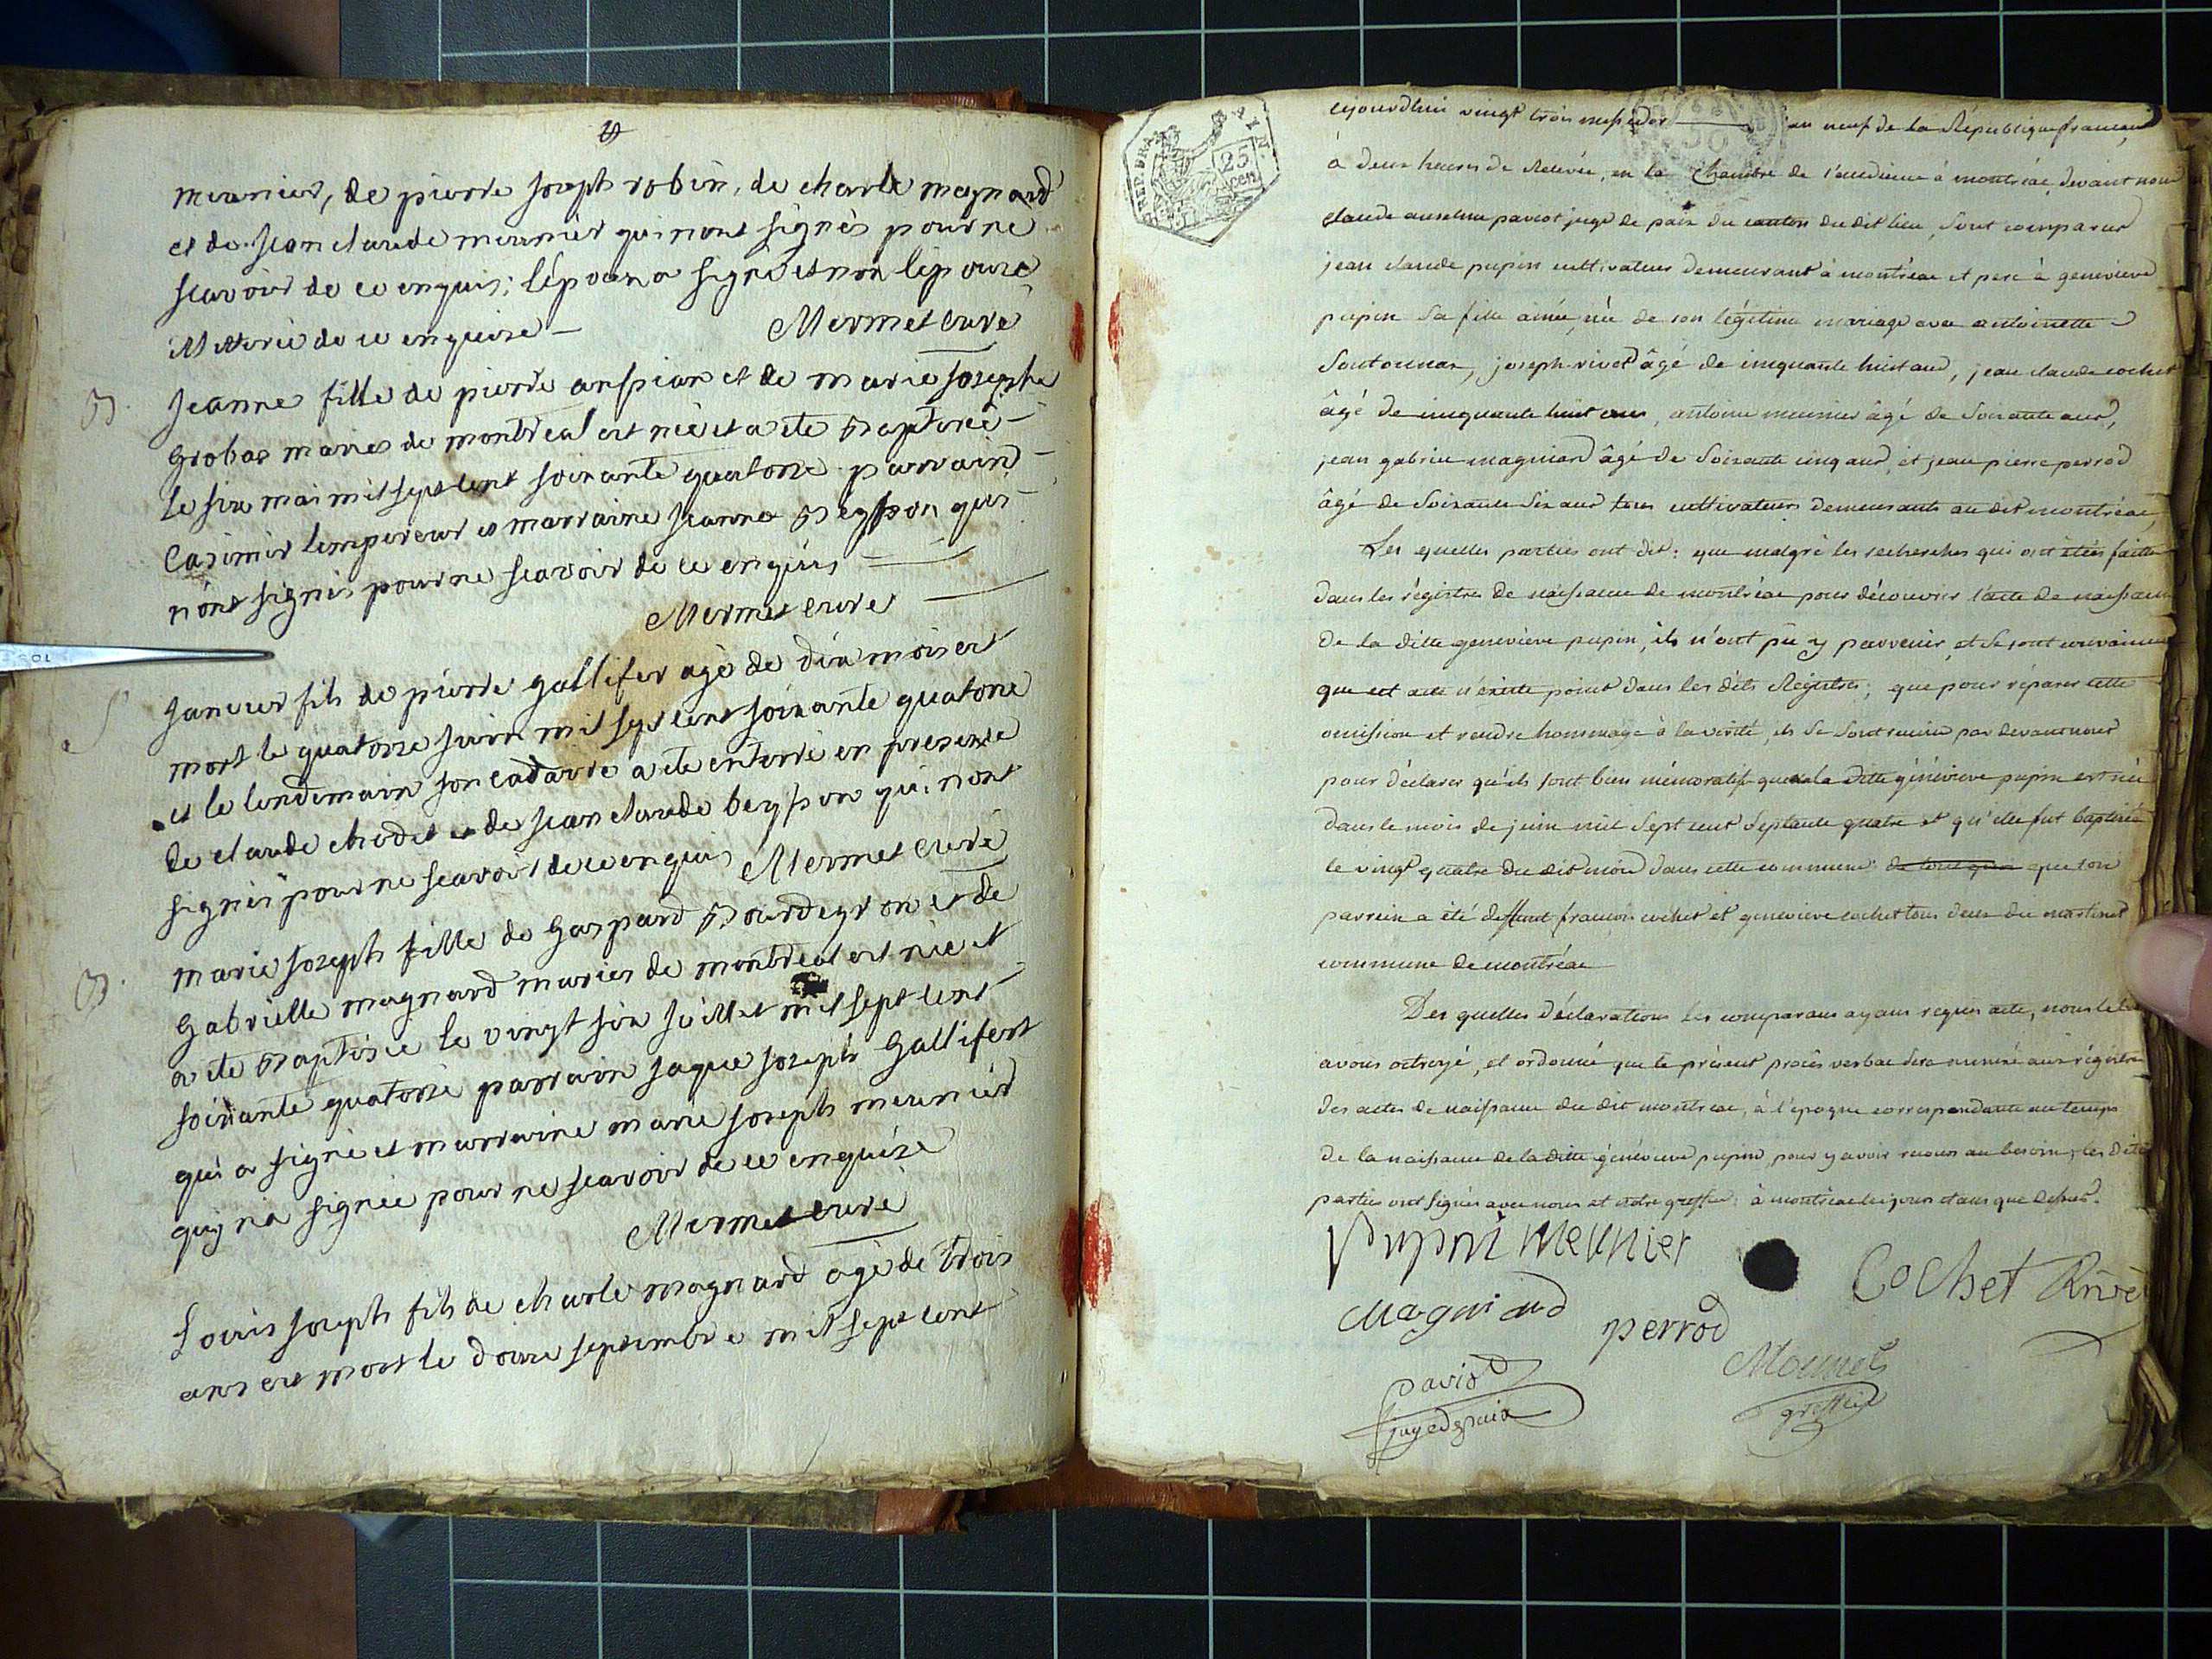 meunier, de pierre joseph robin, de charle magnard
et de jean claude meunier qui nont signés pour ne
scavoir de ce enquis; lépoux a signé et non lépouse
illiterée de ce enquise —
Mermet curé
B.
jeanne fille de pierre anspian et de marie josephe
grobas mariés de montreal est née et a ete Baptisée
le six mai mil sept cent soixante quatorze parrain
Casimir lempereur et marraine jeanne Beysson qui
nont signés pour ne scavoir de ce enquis
Mermet curé
S
fils de pierre gallifer agé de dix mois est
mort le quatorze juin mil sept cent soixante quatorze
et le lendemain son cadavre a ete enterré en presence
de claude chodet et de jean claude beysson qui nont
signés pour ne scavoir de ce enquis Mermet curé
B.
marie joseph fille de gaspard Bourdeyron et de
gabrielle magnard mariés de montreal est née et
a ete Baptisée le vingt six juillet mil sept cent
soixante quatorze parrain jaque joseph Gallifert
qui a signé et marraine marie joseph meunier
qui na signée pour ne scavoir de ce enquise
Mermet curé
Louis joseph fils de charle magnard agé de trois
ans est mort le douze septembre mil sept cent
REP. FRA.
25
cen
50
cejourdhui vingt trois messidor l'an neuf de la République francaise,
à deux heures de Relevée, en la Chambre de l'audience à montréal, devant nous
claude anselme paviot juge de paix du canton du dit lieu, sont comparus
jean claude pupin cultivateur demeurant à montréal et pere à genevieve
pupin sa fille ainée, née de son légitime mariage avec antoinette
joseph rivet âgé de cinquante huit ans, jean claude cochet
âgé de cinquante huit ans, antoine meunier âgé de soixante ans,
jean gabriel magniard âgé de soixante cinq ans, et jean pierre perrod
âgé de soixante six ans tous cultivateurs demeurants au dit montréal,
Les quelles parties ont dit: que malgré les recherches qui ont étées faittes
dans les régistres de naissance de montréal pour découvrir l'acte de naissance
de la ditte genevieve pupin, ils n'ont pu y parvenir, et se sont convaincus
que cet acte n'existe point dans les dits Régistres; que pour réparer cette
omission et rendre hommage à la vérité, ils se sont réunis par devant nous
pour déclarer qu'ils sont bien mémoratifs que la ditte génévieve pupin est née
dans le mois de juin mil sept cent septante quatre et qu'elle fut baptisée
le vingt quatre du dit mois dans cette commune: que son
parrein a été deffunt francois cochet et genevieve cochet tous deux du martinet
commune de montréal
Des quelles déclarations les comparans ayans requis acte, nous le leur
avons octroyé, et ordonné que le présent procès verbal sera annexé aux régistres
des actes de naissance du dit montréal, à l'époque correspondante au temps
de la naissance de la ditte génévieve pupin, pour y avoir recours au besoin; les dites
parties ont signés avec nous et notre greffier: à montréal les jours et ans que dessus.
Pupin Meunier
Cochet Rive
Magniard
perrod
juge de paix
greffier